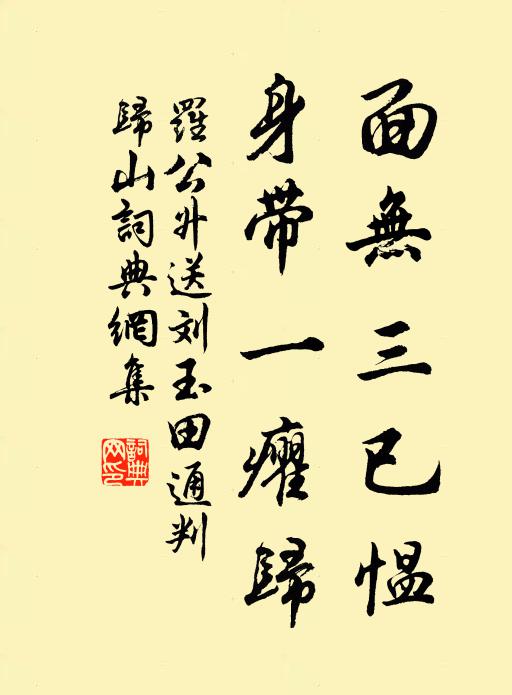 面無三已愠
身帶一癯歸
羅公外送刘玉田通判
歸山詞典網集
詞典
网印